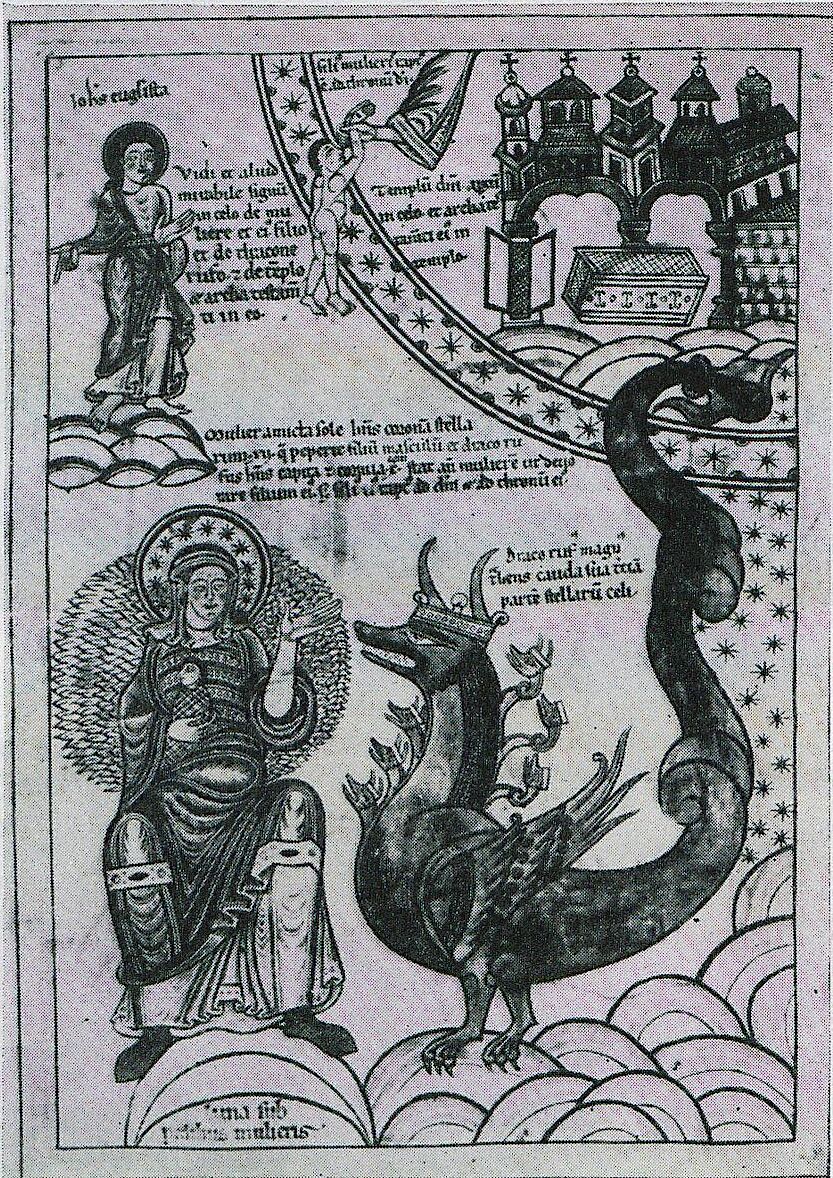 Ioh's eugl'ista
Vidi et aliud
mirabile signū
in celo de mu
liere et ei' filio
et de dracone
rufo et de tēplo
et archa testam
ti in eo.
fili' mulier' rapt'
ad thronū dī
Templū dn̄i aptū
in celo et archa te
in
templo.
Mulier amicta sole hn̄s coronā stella
rum q̄ peperit filiū masculū et draco ru
fus hn̄s capita et cornua stat an̄ muliere ut devo
raret filium ei' ad dm̄ et ad thronū ei'
Draco ruf' magn'
t̄hens cauda sua t̄ciā
partē stellarū celi
luna sub
pedibus mulieris